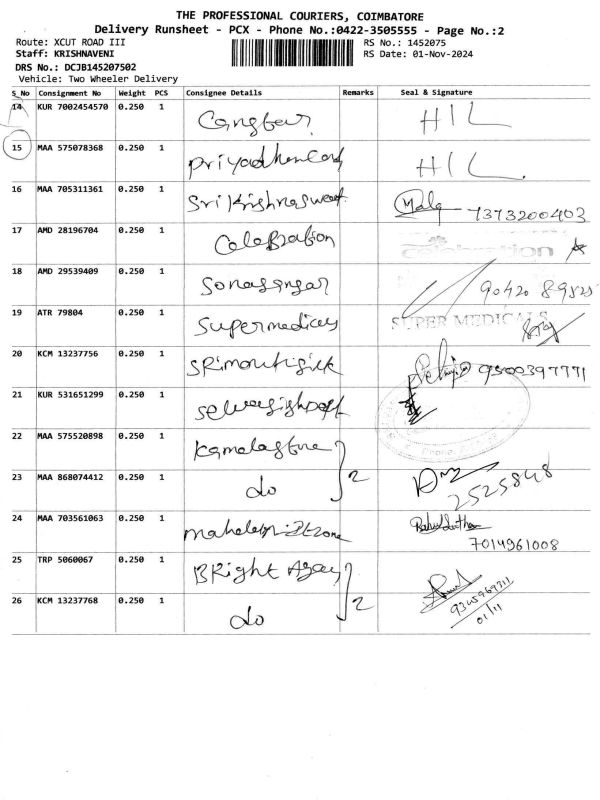 THE PROFESSIONAL COURIERS, COIMBATORE
Delivery Runsheet - PCX - Phone No.:0422-3505555 - Page No.:2
Route: XCUT ROAD III RS No.: 1452075
Staff: KRISHNAVENI RS Date: 01-Nov-2024
DRS No.: DCJB145207502
Vehicle: Two Wheeler Delivery
S_No Consignment No Weight PCS Consignee Details Remarks Seal & Signature
14 KUR 7002454570 0.250 1 HIL
15 MAA 575078368 0.250 1 HIL
16 MAA 705311361 0.250 1 Sri Krishna sweet Mala 7373200403
17 AMD 28196704 0.250 1 Celebration celebration
18 AMD 29539409 0.250 1 90420 89525
19 ATR 79804 0.250 1 supermedicals SUPER MEDICALS
20 KCM 13237756 0.250 1 9500397771
21 KUR 531651299 0.250 1 Phone
22 MAA 575520898 0.250 1 Kamala store
23 MAA 868074412 0.250 1 do 2 2525848
24 MAA 703561063 0.250 1 7014961008
25 TRP 5060067 0.250 1 BRight
26 KCM 13237768 0.250 1 do 2
01/11